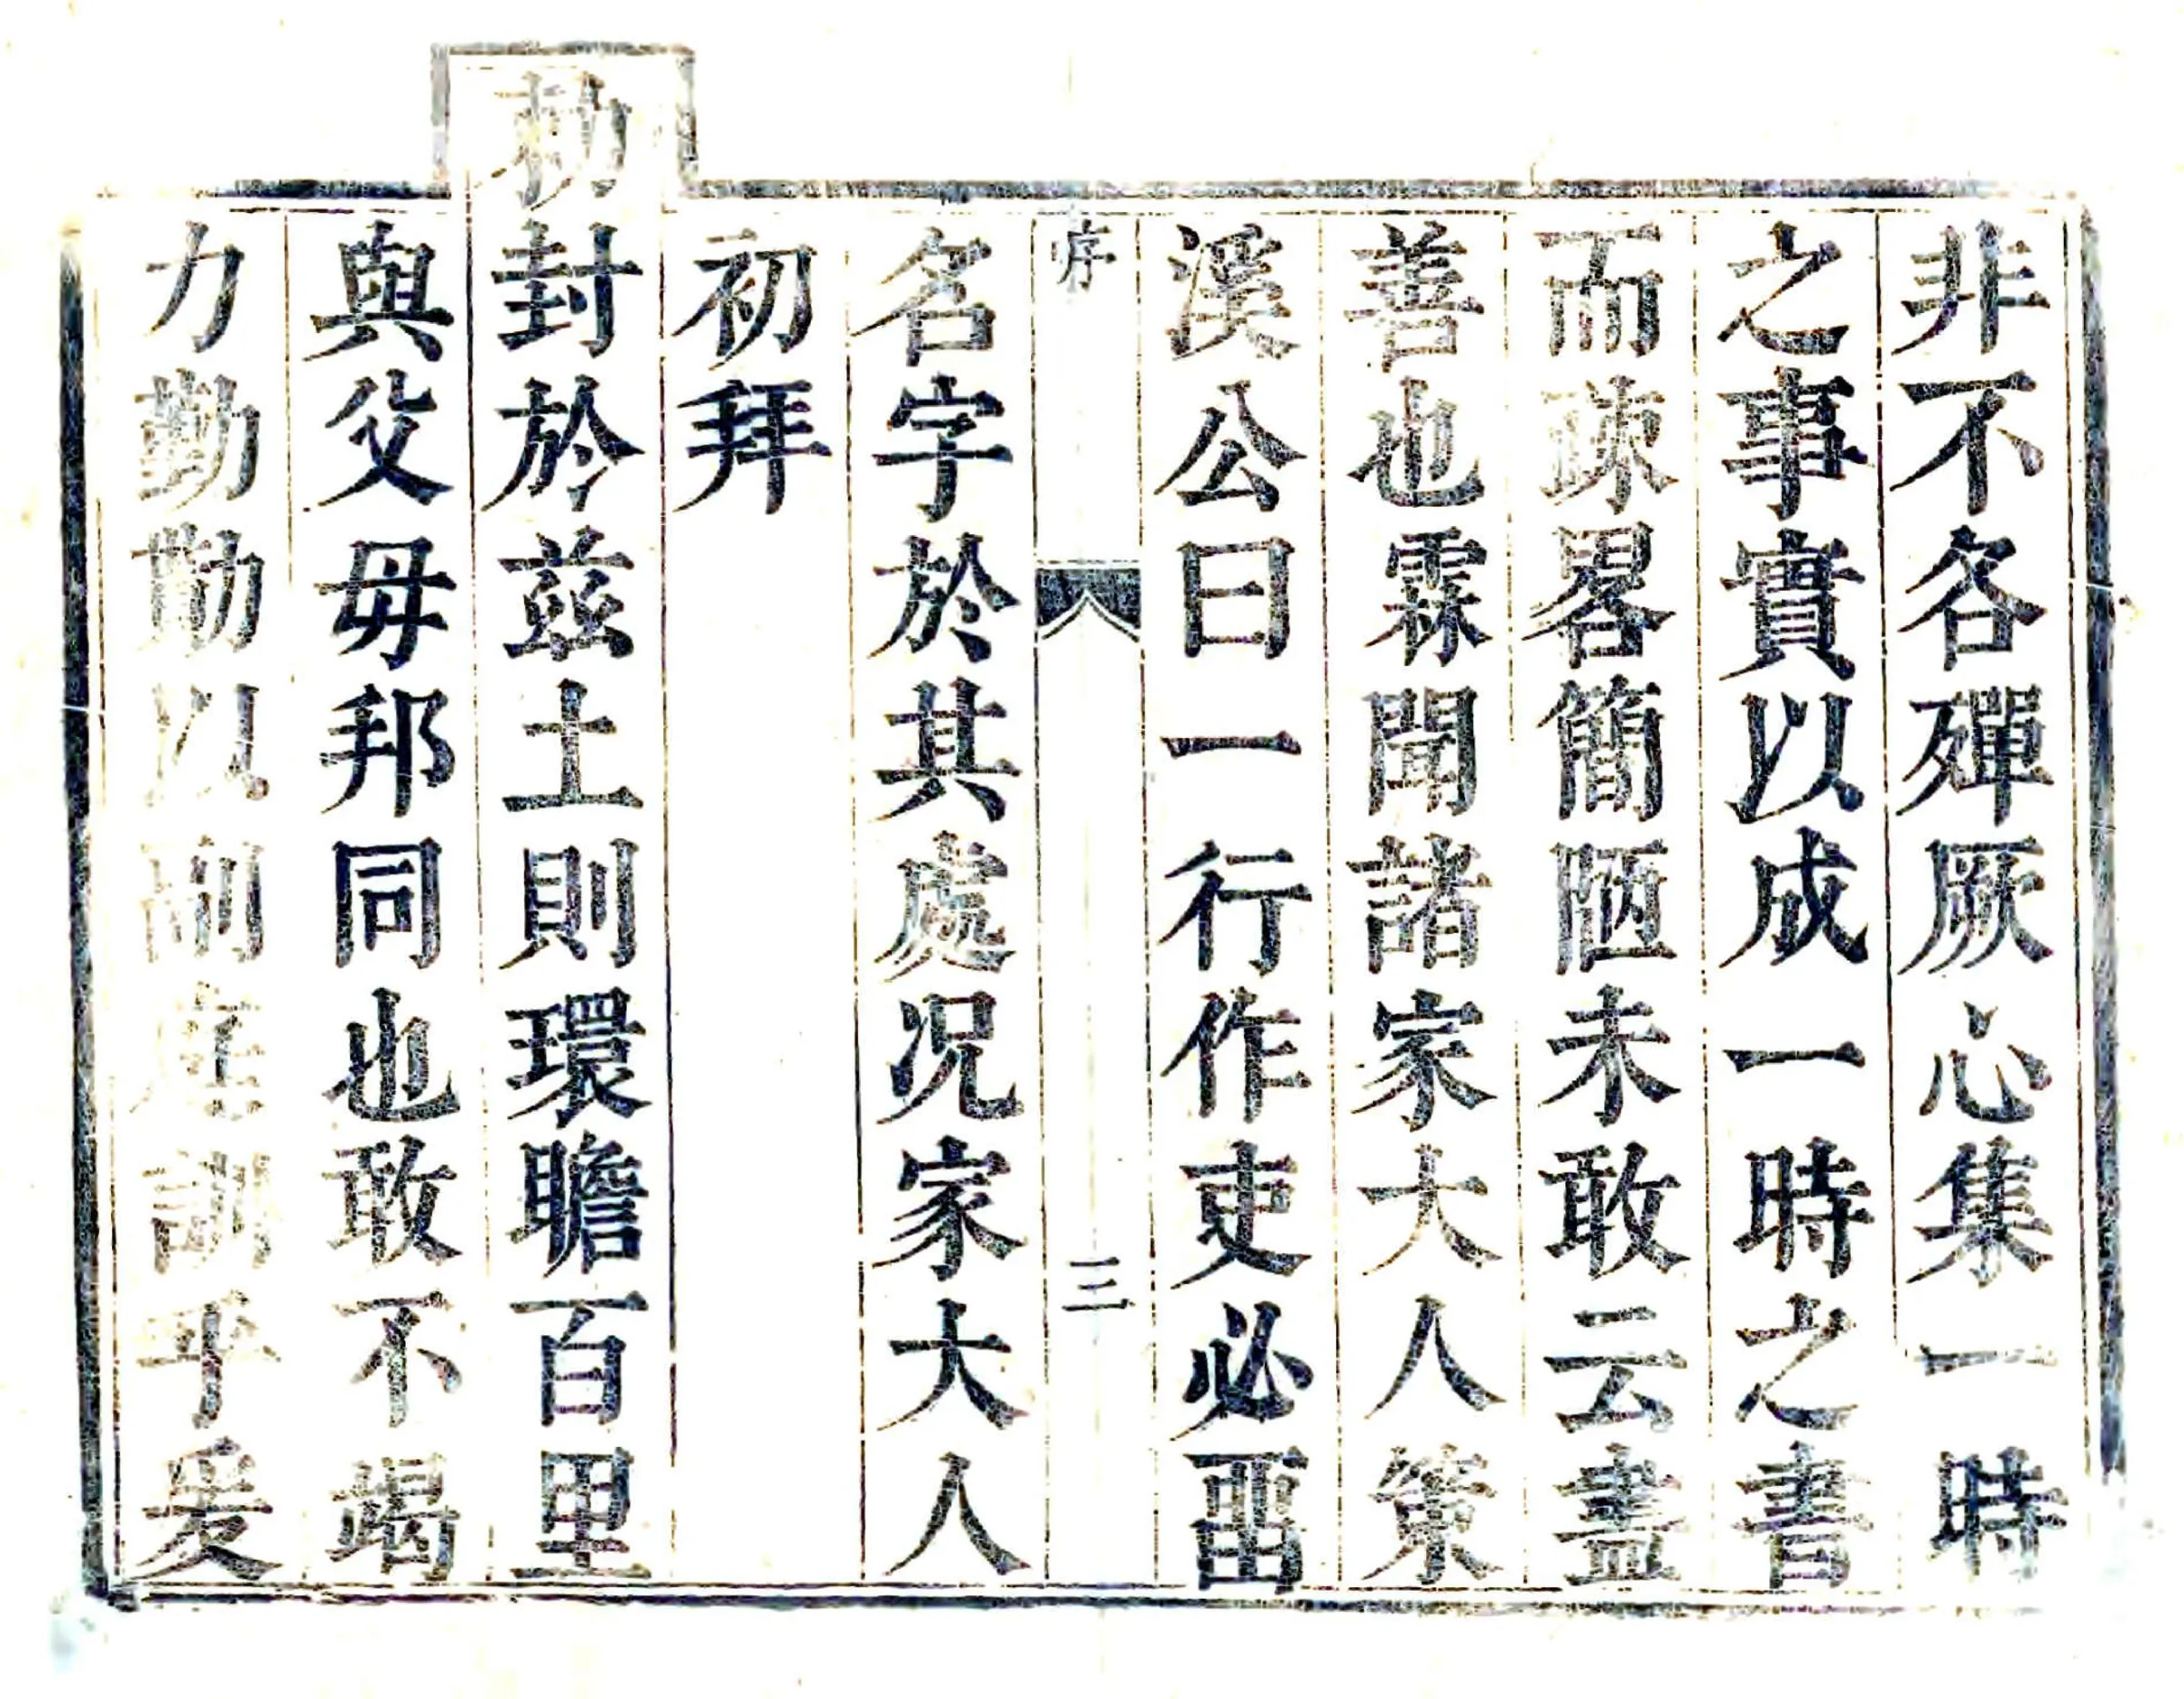 非不各殫厥心集一時
之事實以成一時之書
而疎畧簡陋未敢云盡
善也霖聞諸家大人策
溪公曰一行作吏必畱
序
三
名字於其處况家大人
初拜
勅封於兹土則環瞻百里
與父母邦同也敢不竭
力勤勤以副庭訓乎爰